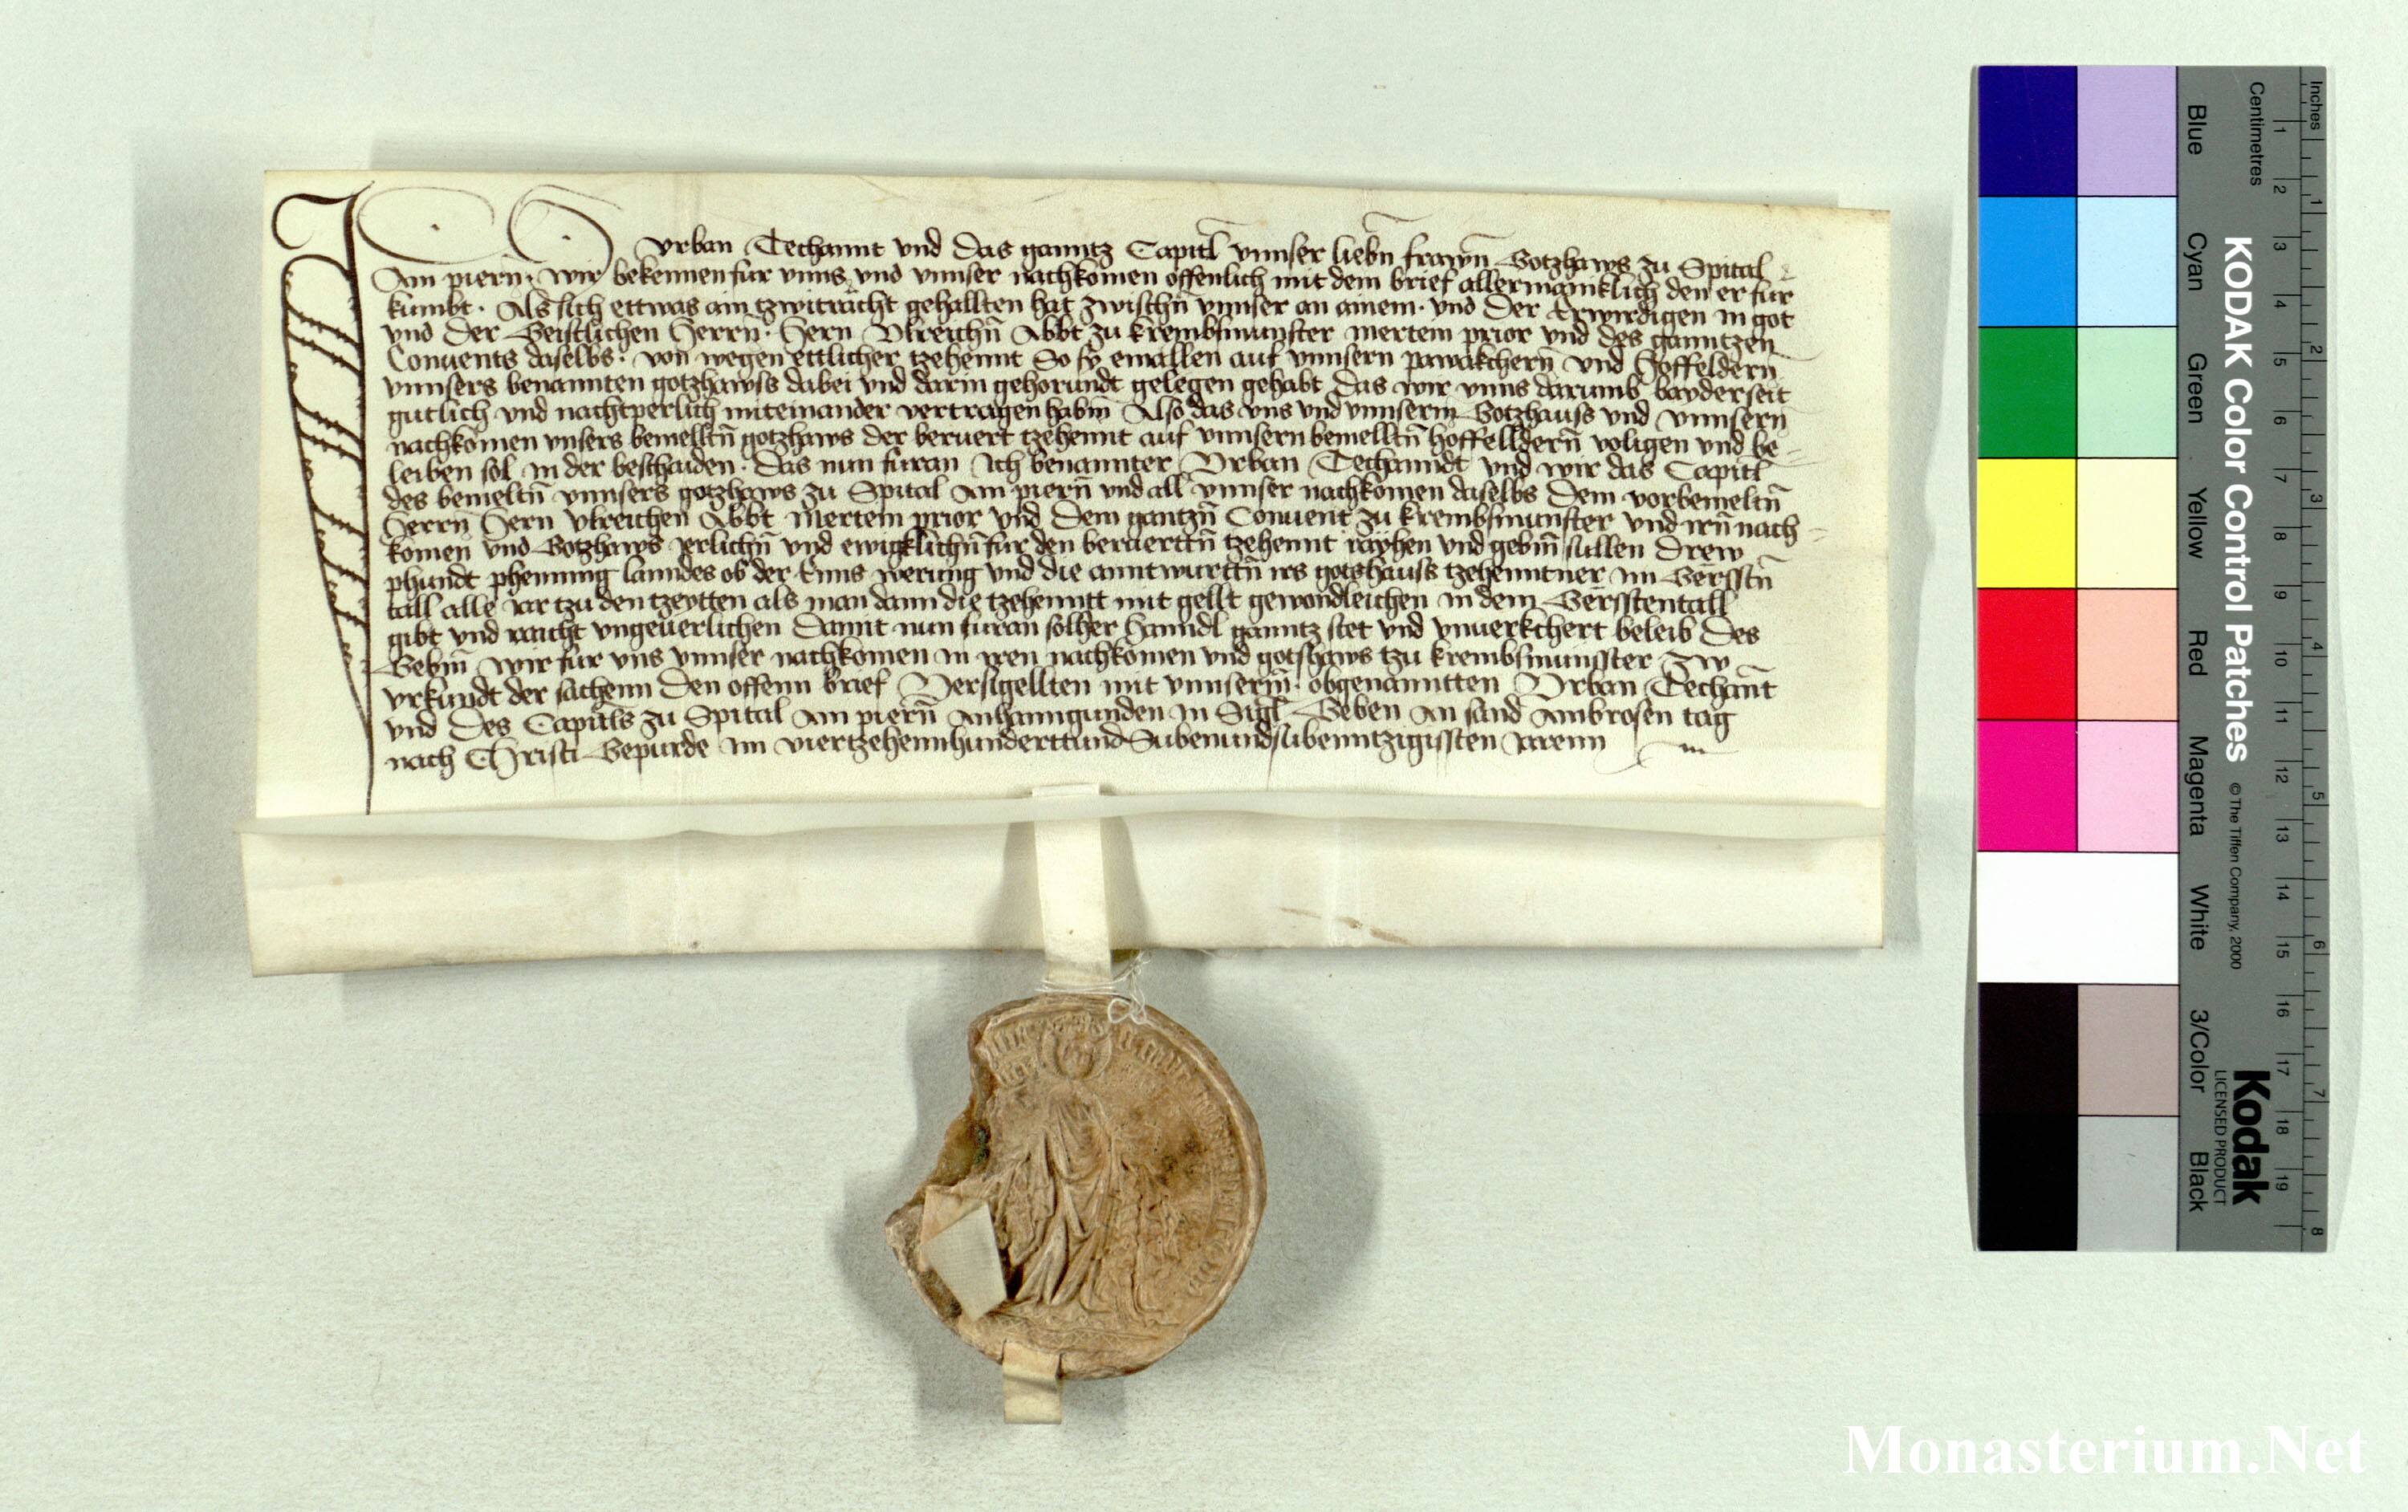 Ich Vrban Techannt vnd das ganntz Capitl vnnser liebn̄ frawn̄ Gotzhaws zu Spital
Am piern̄. wir bekennen fur vnns vnd vnnser nachkomen offenlich mit dem brief allermanklich den er fur
kumbt. Als sich ettwas ain tzwitracht gehallten hat zwischn̄ vnnser an ainem. vnd Der Erwirdigen in got
vnd Der Geistlichen Herrn̄. Hern Vlreichn̄ Abbt zu krembsmunster mertem prior vnd des ganntzen
Conuents daselbs. von wegen ettlicher tzehennt So sy emallen auf vnnsern pawakchern̄ vnd Hoffeldern
vnnsers benannten gotzhawss dabei vnd darin gehorundt gelegen gehabt Das wir vnns darumb bayderseit
gutlich vnd nachtperlich miteinander vertragen habm̄ Also das vns vnd vnnserm Gotzhauss vnd vnnsern
nachkomen vnsers bemelltn̄ gotzhaws der beruert tzehennt auf vnnsern bemelltn̄ hoffelldern̄ voligen vnd be=
leiben sol in der beschaiden. Das nun furan Ich benannter Vrban Techanndt vnd wir das Capitl
des bemeltn̄ vnnsers gotzhaws zu Spital Am piern̄ vnd all vnnser nachkomen daselbs Dem vorbemeltn̄
Herrn̄ Hern vlreichen Abbt mertem prior vnd Dem gantzn̄ Conuent zu krembsmunster vnd irn̄ nach=
komen vnd Gotzhaws Jerlichn̄ vnd ewigklichn̄ fur den beruerttn̄ tzehennt rayhen vnd gebm̄ sullen Drew
phundt phenning lanndes ob der Enns werung vnd die anntwurttn̄ irs gotshauss tzehenntner im Gersstn̄
tall alle Jar tzu den tzeytten als man dann die tzehenntt mit gellt gewondleichen in dem Gersstentall
gibt vnd raicht vngeuerlichen Damit nun furan solher Hanndl ganntz stet vnd vnuerkchert beleib Des
Gebm̄ wir fur vns vnnser nachkomen in iren nachkomen vnd gotshaws tzu krembsmunsster Zw
vrkundt der sachenn Den offenn brief Versigellten mit vnnserm̄. obgenanntten Vrban Techannt
vnd Des Capitls zu Spital Am piern̄ Anhanngunden in Sigl Geben An sand Ambrosen tag
nach Christi Gepurde im viertzehennhunderttund Subenundsubenntzigissten Jarenn
Inches
Centimetres
Blue
Cyan
Green
Yellow
Red
Magenta
White
3/Color
Black
KODAK Color Control Patches © The Tiffen Company, 2000
Kodak
LICENSED PRODUCT
1 2 3 4 5 6 7 8 9 10 11 12 13 14 15 16 17 18 19
1 2 3 4 5 6 7 8
Monasterium.Net